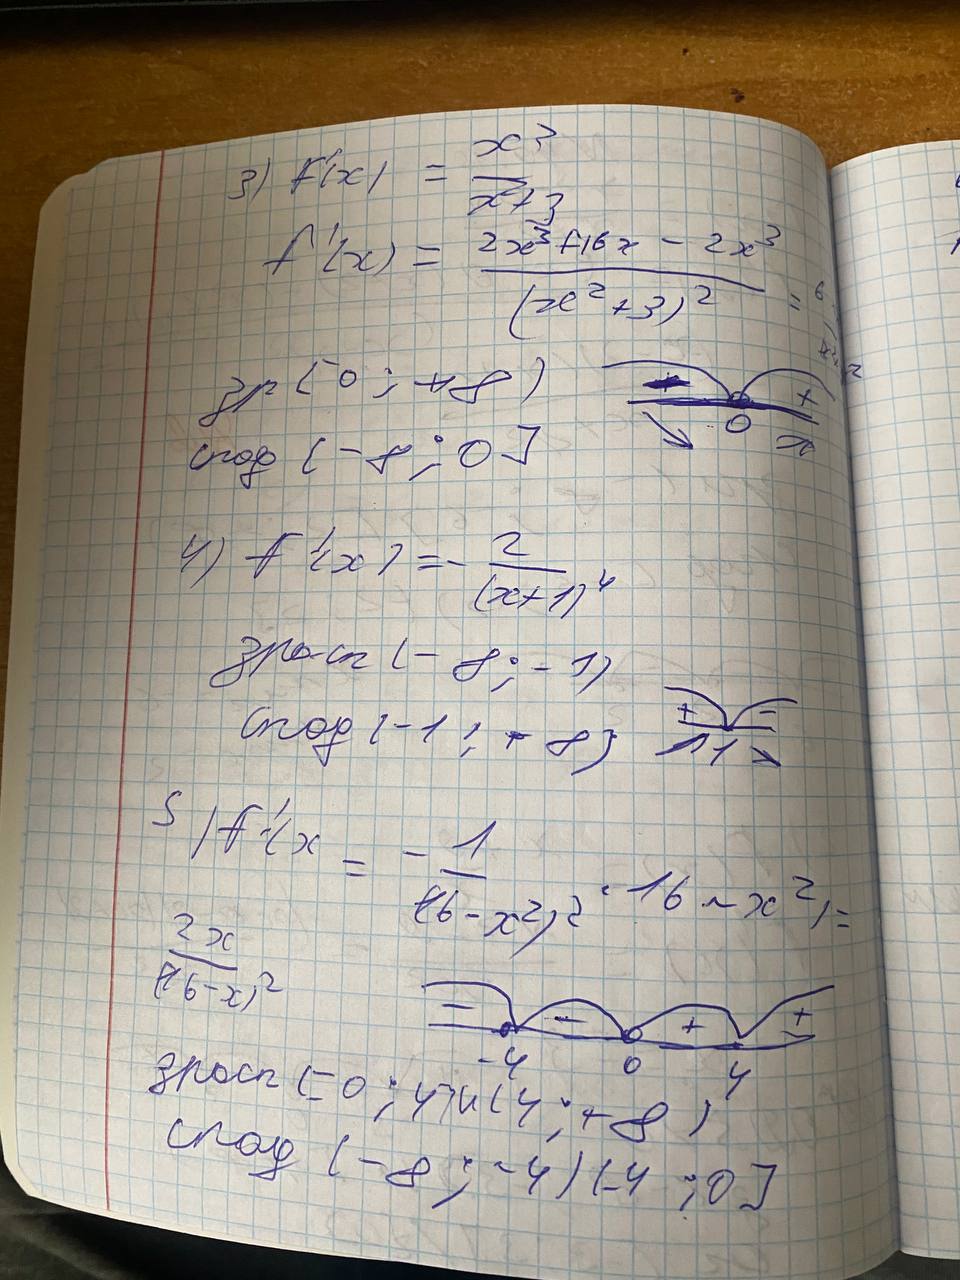 3) f'(x) = x³/(x²+3)
f'(x) = (2x³+16x - 2x³)/(x²+3)² = 6
зр [0; +8)
- +
0
спад (-8; 0]
4) f'(x) = - 2/(x+1)⁴
зрост (-8; -1)
спад (-1; +8)
+ -
-1
5) f'(x = - 1/(16-x²)² · 16 - x²) =
2x/(16-x)²
- - + +
-4 0 4
зрост [0; 4) и (4; +8)
спад (-8; -4) (-4; 0]